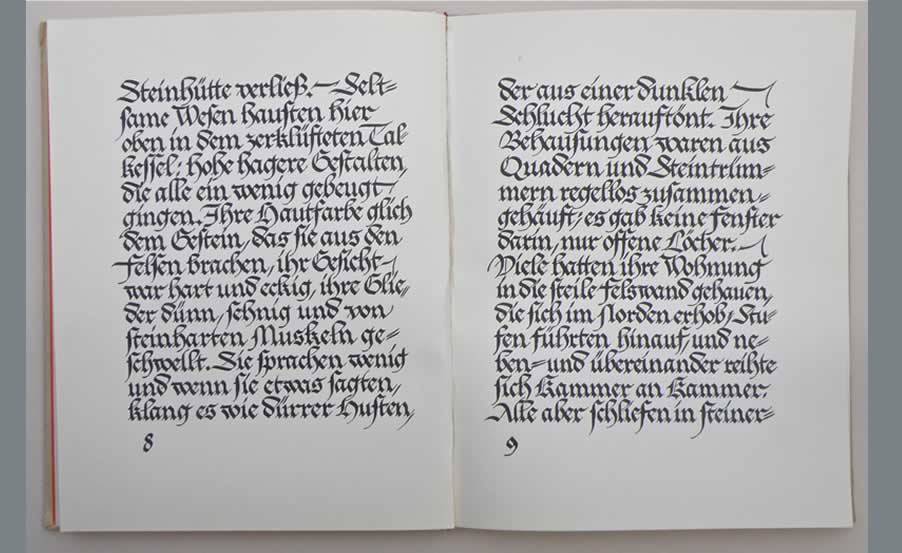 Steinhütte verließ. – Selt=
same Wesen hausten hier
oben in dem zerklüfteten Tal=
kessel; hohe hagere Gestalten,
die alle ein wenig gebeugt
gingen. Ihre Hautfarbe glich
dem Gestein, das sie aus den
Felsen brachen, ihr Gesicht
war hart und eckig, ihre Glie=
der dünn, sehnig und von
steinharten Muskeln ge=
schwellt. Sie sprachen wenig
und wenn sie etwas sagten,
klang es wie dürrer Husten,
8
der aus einer dunklen
Schlucht herauftönt. Ihre
Behausungen waren aus
Quadern und Steintrüm=
mern regellos zusammen=
gehäuft; es gab keine Fenster
darin, nur offene Löcher. –
Viele hatten ihre Wohnung
in die steile Felswand gehauen,
die sich im Norden erhob; Stu=
fen führten hinauf, und ne=
ben= und übereinander reihte
sich Kammer an Kammer.
Alle aber schliefen in steiner=
9